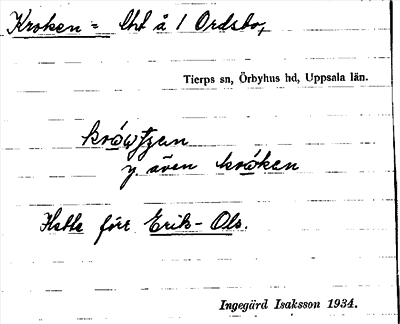 Kroken = lht å 1 Ordsbo,
Tierps sn, Örbyhus hd, Uppsala län.
y. även kråken
Hette förr Erik-Ols.
Ingegärd Isaksson 1934.